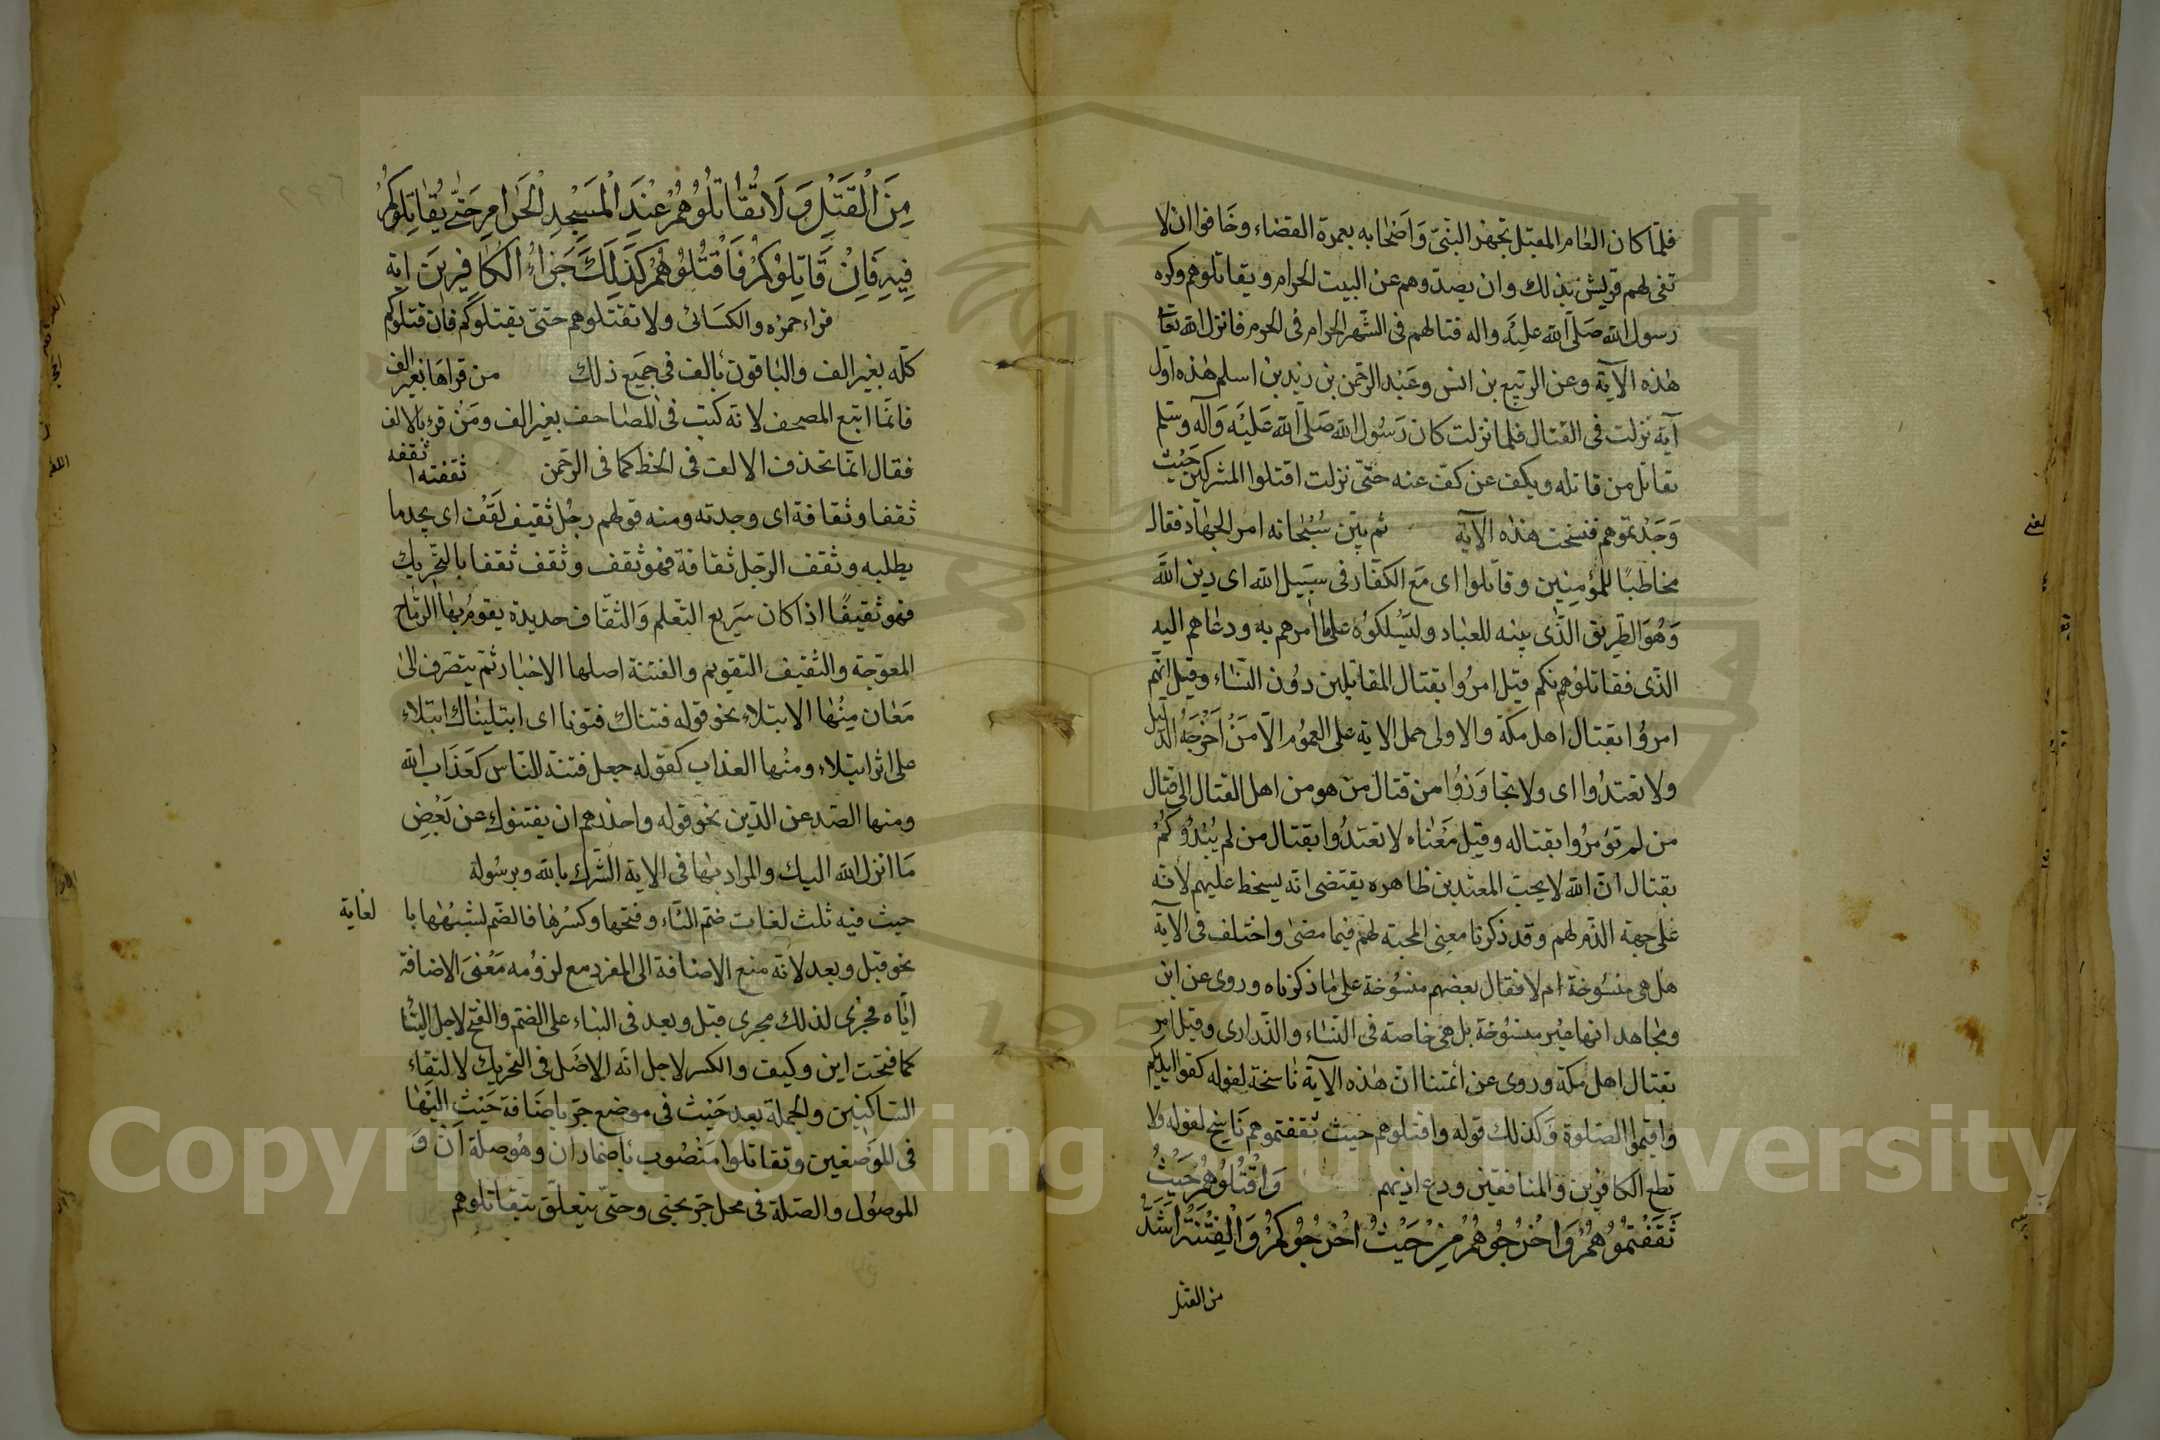 فلما كان العام المقبل تجهز النبي وَاَصْحَابه بعمرة القضاء وخَافوا ان لا
تفى لهم قريش بذلك وان يصدّوهم عن البيت الحرام ويقاتلوهم وكره
رسول الله صَلّى الله عليْه واله قتالهم فى الشّهر الحرام فى الحرم فانزل الله تعا
هٰذه الآية وعن الربيع بن انس وعَبْد الرحمن بن زيد بن اسلم هٰذه اوّل
آية نزلت فى القتال فلما نزلت كان رَسُول الله صَلّى الله عَليْه وَآله وسّلم
يقاتل من قاتله ويكف عن كفّ عنه حتّى نزلت اقتلوا المشركين حَيْث
وَجَدْتموهم فنسخت هذه الآية ثم بيّن سُبْحانه امر الجهاد فقال
مخاطبًا للمؤمِنِين وقاتلوا اى مَع الكفّار فى سَبيل الله اى دين الله
وَهُوَ الطّريق الّذى بينه للعباد وليَسْلكوُه على ما امرهم به ودعاهم اليه
الّذى فقاتلوُهم نكم قيل امرُوا بقتال المقاتلين دوُن النّسَاء وقيل انّهم
امرُوا بقتال اهل مكة والاولى حمل الاية على العموُم الّا مَنْ اَخرَجَهُ الدّليل
ولا تعتدُوا اى ولا تجاوَزوُا من قتال من هو من اهل القتال الى قتال
من لم تؤمرُوا بقتاله وقيل مَعْناه لا تعتدُوا بقتال من لم يُبْدُوكُمْ
بقتال انّ الله لا يحبّ المعتدين ظاهره يقتضى انّه يسخط عليهم لأنّه
على جهة الذّم لهم وقد ذكرنا معنى المحبّة لهم فيما مضىٰ واختلف فى الآية
هل هى منسُوخة ام لا فقال بعضهم منسُوخة على مٰا ذكرناه وروى عن ابن
ومجاهد انها غير منسُوخة بل هى خاصة فى النّسَاء والذّرارى وقيل امر
بقتال اهل مكة وروى عن ائمتنا انّ هٰذه الآية نٰاسخة لقوله كفّوا ايديكم
واقيموا الصّلوة وَكذلك قوله واقتلوهم حيث ثقفتموهم نَاسِخ لقوله ولا
تطع الكافرين والمنافقين ودع اذيهم وَاقْتُلُوُهُمْ حَيْثُ
ثَقَفْتُمُوُهُمْ وَاَخْرِجُوُهُمْ مِنْ حَيْثُ اَخْرَجُوُكُمْ وَالْفِتْنَةُ اَشَدُّ
من القتل
مِنَ الْقَتْلِ وَلَا تُقٰاتِلُوُهُمْ عِنْدَ الْمَسْجِدِ الْحَرٰامِ حَتّىٰ يُقٰاتِلُوكُمْ
فِيهِ فَاِنْ قٰاتَلُوكُمْ فَاقْتُلُوُهُمْ كَذٰلِكَ جَزٰاءُ الْكٰافِرِينَ اية
قراء حمزه والكسَائى ولا تقتلوهم حتىّ يقتلوكم فان قتلوكم
كلّه بغير الف والباقون بألف فى جَميع ذلك من قراها بغير الف
فانمّا اتبع المصحف لانه كتب فى المصاحف بغير الف ومَنْ قرء بالالف
فقال انمّا تحذف الالف فى الخط كما فى الرحمن ثقفته اثقفه
ثقفا وثقافة اى وجدته ومنه قولهم رجُل ثقيف لقف اى يجد ما
يطلبه وثقف الرّجل ثقافة فهو ثقف وثقف ثقفا بالتّحريك
فهو ثقيفًا اذا كان سَريع التّعلم وَالثّقاف حديدة يقوم بهٰا الرّماح
المعوّجة والثقيف التقويم والفتنة اصلها الاختبار ثمّ يتصّرف الىٰ
مَعٰان مِنْهٰا الابتلاء نحو قوله فتناك فتونا اى ابتليناك ابتلاء
على اثر ابتلاء ومنها العذاب كقوله جعل فتنة الناس كعَذَاب الله
ومنها الصّد عن الدّين نحو قوله واحذرهم ان يفتنوك عن بَعْضِ
مَا انزل الله اليك والمراد بهٰا فى الاية الشّرك بالله وبرسُوله
حيث فيه ثلث لغات ضّم الثّاء وفتحها وكسرُهٰا فالضّم لشبُههٰا با لغاية
نحو قبل وبعد لانّه منع الاضافة الى المفرد مع لزوُمه مَعْنىَ الاضافة
ايّاه فجرى لذلك مجرى قبل وبعد فى البناء على الضّم والفتح لاجل اليٰا
كما فتحت اين وكيف والكسر لاجل انّه الاصْل فى التحريك لالتقٰاء
السّاكنين والجملة بعد حَيْث فى موضع جرّ باضَافة حَيْث اليهٰا
فى الموَضعَين وتقاتلوا منْصُوب بأضمار ان وهُو صلة اَنْ وَ
الموصُول والصّلة فى محل جرّ بحتى وحتىّ يتعلّق بتقاتلوهم